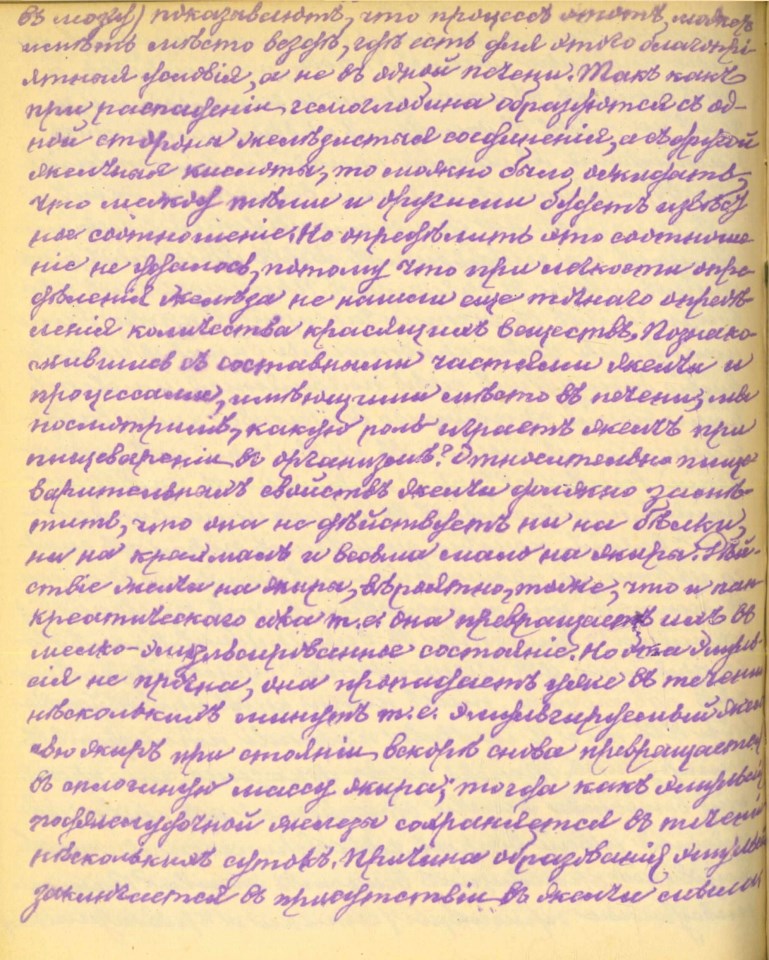 въ мозгу) показываютъ, что процессъ этотъ можетъ
имѣть мѣсто вездѣ, гдѣ есть для этого благопрі-
ятныя условія, а не въ одной печени. Такъ какъ
при распаденіи гемоглобина образуются съ од-
ной стороны желѣзистыя соединенія, а съ другой
желчныя кислоты, то можно было ожидать,
что между тѣми и другими будетъ извѣст
ное соотношеніе. Но опредѣлить это соотноше
ніе не удалось, потому что при легкости опре
дѣленія желѣза не нашли еще точнаго опредѣ
ленія количества красящихъ веществъ. Познако-
мившись съ составными частями желчи и
процессами, имѣющими мѣсто въ печени, мы
посмотримъ, какую роль играетъ желчь при
пищевареніи въ организмѣ? Относительно пище
варительныхъ свойствъ желчи должно замѣ-
тить, что она не дѣйствуетъ ни на бѣлки,
ни на крахмалъ и весьма мало на жиры. Дѣй-
ствіе желчи на жиры, вѣроятно, тоже, что и пан-
креатическаго сока т.е. она превращаетъ ихъ въ
мелко-эмульсированное состояніе. Но эта эмуль-
сія не прочна, она пропадаетъ уже въ теченіи
нѣсколькихъ минутъ т.е. эмульгируемый желч
ью жиръ при стояніи вскорѣ снова превращается
въ сплошную массу жира; тогда какъ эмульсія
поджелудочной железы сохраняется въ теченіи
нѣсколькихъ сутокъ. Причина образованія эмульсіи
заключается въ присутствіи въ желчи